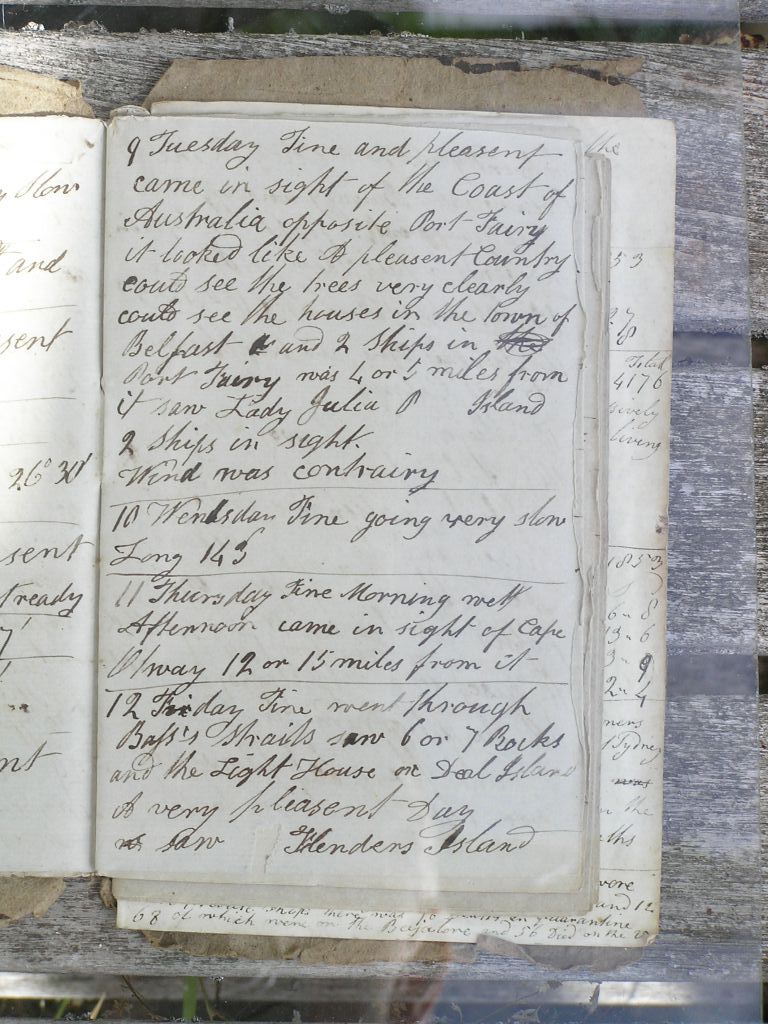 y Slow
and
sent
26° 30'
sent
tready
7'
nt
9 Tuesday Fine and pleasent
came in sight of the Coast of
Australia opposite Port Fairy
it looked like A pleasent Country
could see the trees very clearly
could see the houses in the town of
Belfast and 2 Ships in the
Port Fairy was 4 or 5 miles from
it saw Lady Julia P Island
2 Ships in sight.
Wind was contrairy
10 Wensday Fine going very slow
Long 143
11 Thursday Fine Morning wett
Afternoon came in sight of Cape
Olway 12 or 15 miles from it
12 Friday Fine went through
Bass's Straits saw 6 or 7 Rocks
and the Light House on Deal Island
A very pleasent Day
saw Flenders Island
the
53
27
8
4176
sively
living
1853
6 " 8
13 " 6
3 " 9
2 " 4
ners
Sydney
was
the
ths
wore
and 12
ships there was 16 in quarantine
68 of which were on the and 56 Died on the